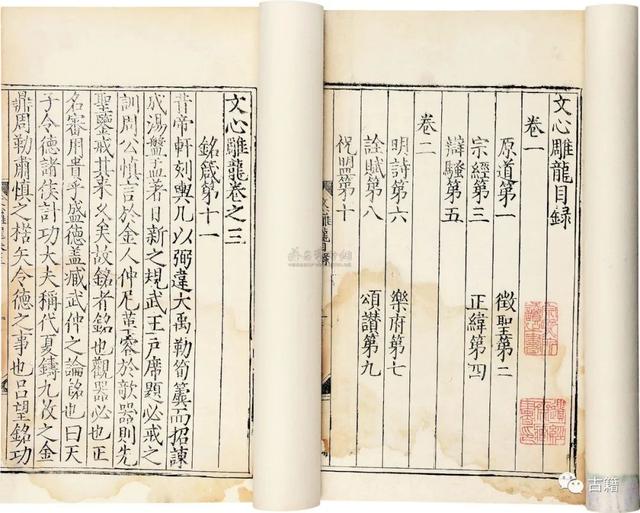 文心雕龍目錄
卷一
原道第一 徵聖第二
宗經第三 正緯第四
辯騷第五
卷二
明詩第六 樂府第七
詮賦第八 頌讚第九
祝盟第十
文心雕龍目錄
文心雕龍卷之三
銘箴第十一
昔帝軒刻輿几以弼違大禹勒筍簴而招諫
成湯盤盂著日新之規武王戶席題必戒之
訓周公慎言於金人仲尼革容於欹器則先
聖鑒戒其來久矣故銘者銘也觀器必也正
名審用貴乎盛德蓋臧武仲之論銘也曰天
子令德諸侯計功大夫稱代夏鑄九牧之金
鼎周勒肅慎之楛矢令德之事也呂望銘功
古籍